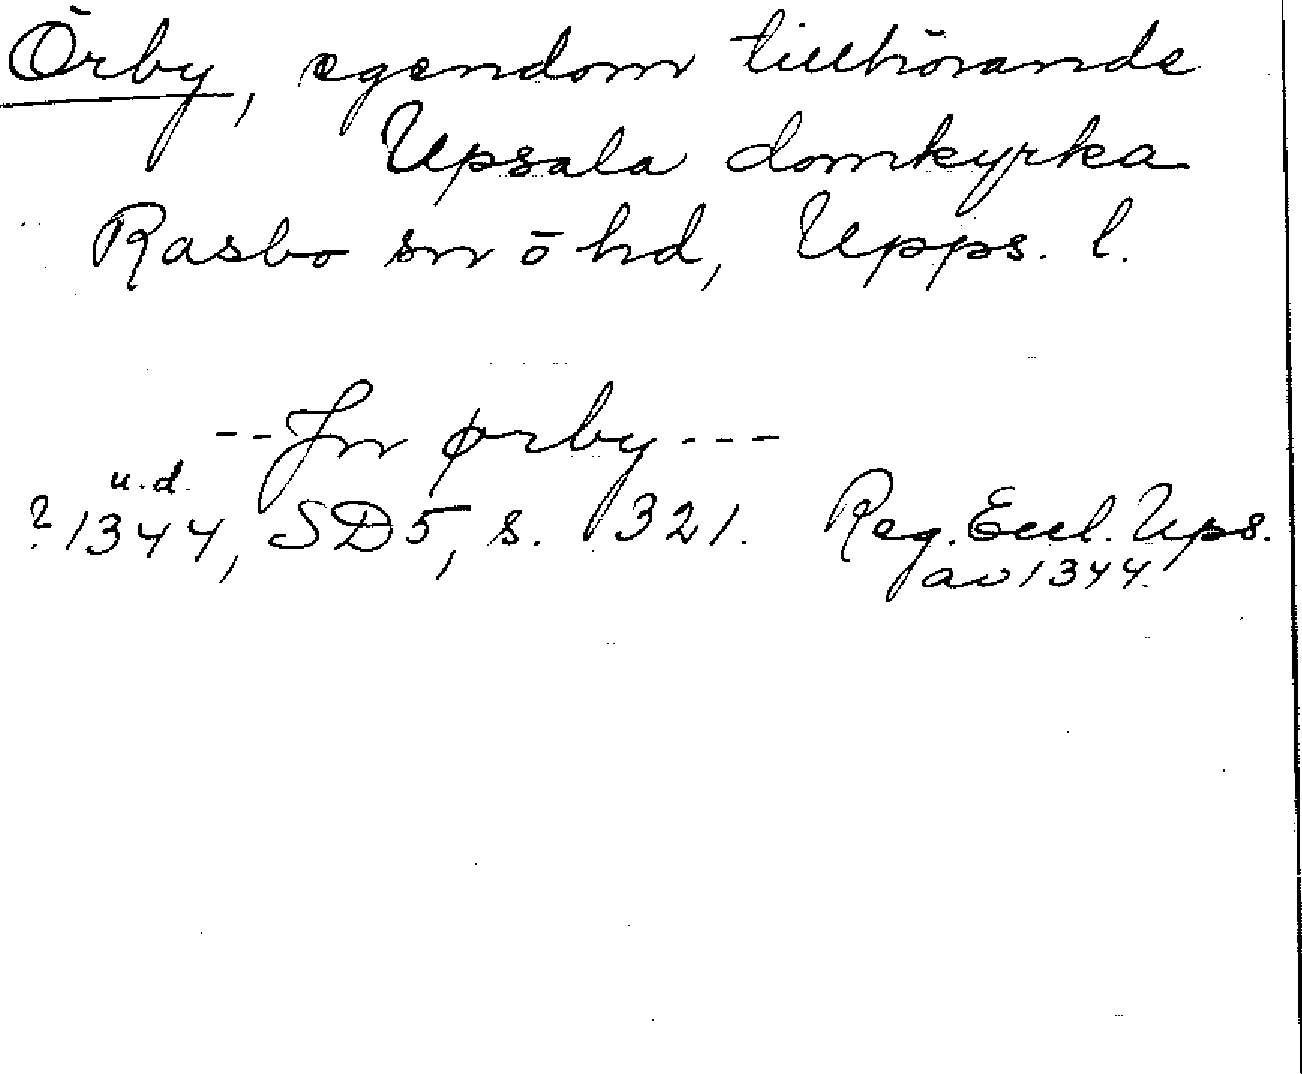 Örby, egendom tillhörande
Upsala domkyrka
Rasbo sn ō hd, Upps. l.
--Jn ørby---
u.d.
? 1344, SD5, s. 321. Reg. Eccl. Ups.
av 1344.